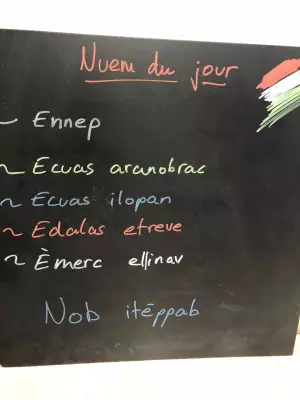 Nuem du jour
~ Ennep
~ Ecuas aranobrac
~ Ecuas ilopan
~ Edalas etreve
~ Èmerc ellinav
Nob itéppab